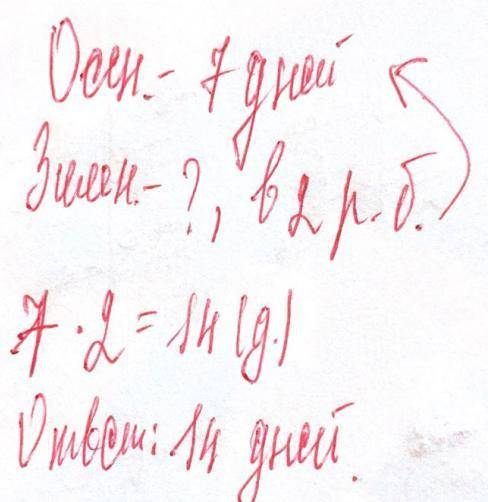 Осен.- 7 дней
Зимн.- ?, в 2 р. б.
7 · 2 = 14 (д.)
Ответ: 14 дней.